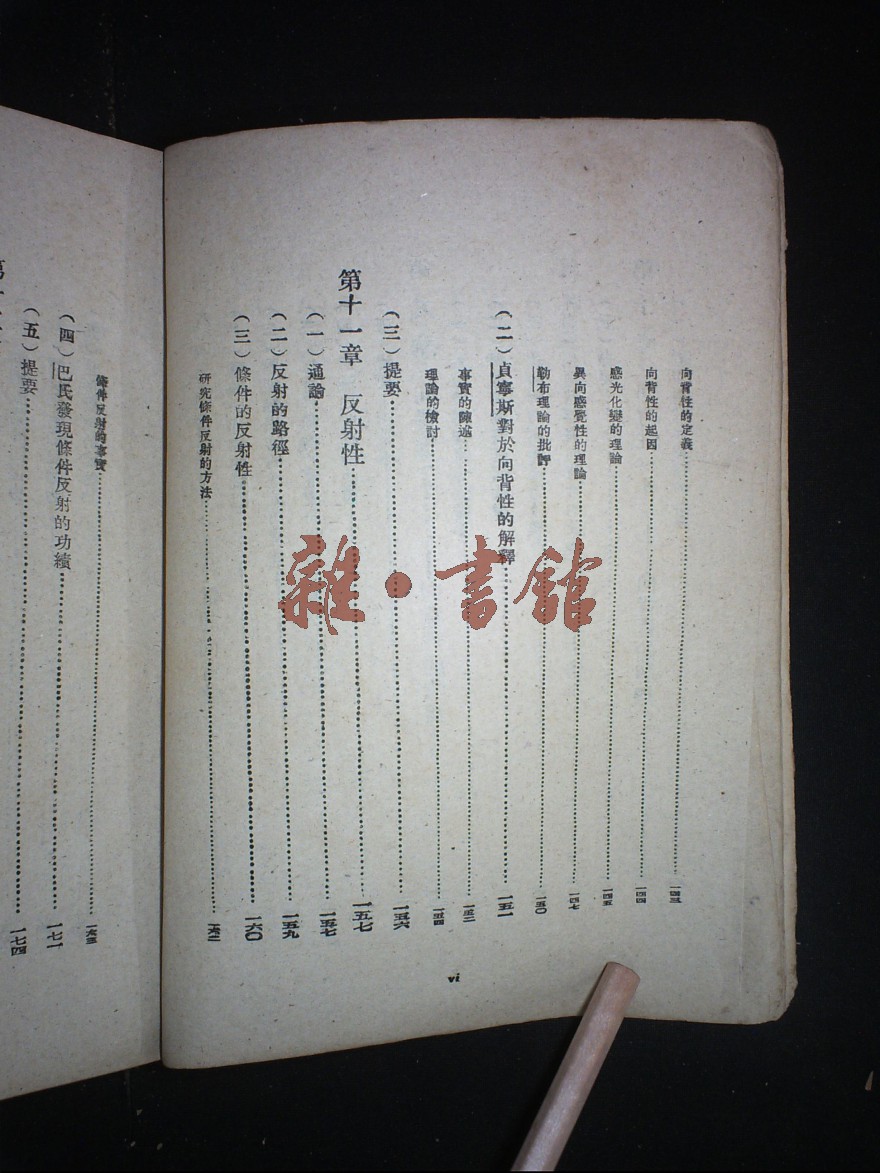 向背性的定義 一四三
向背性的起因 一四四
感光化變的理論 一四五
異向感覺性的理論 一四七
勒布理論的批評 一五〇
(二)貞寧斯對於向背性的解釋 一五一
事實的陳述 一五二
理論的檢討 一五四
(三)提要 一五六
第十一章 反射性 一五七
(一)通論 一五七
(二)反射的路徑 一五九
(三)條件的反射性 一六〇
研究條件反射的方法 一六二
vi
條件反射的事實 一六三
(四)巴氏發現條件反射的功績 一七一
(五)提要 一七四
第十
雜·書館